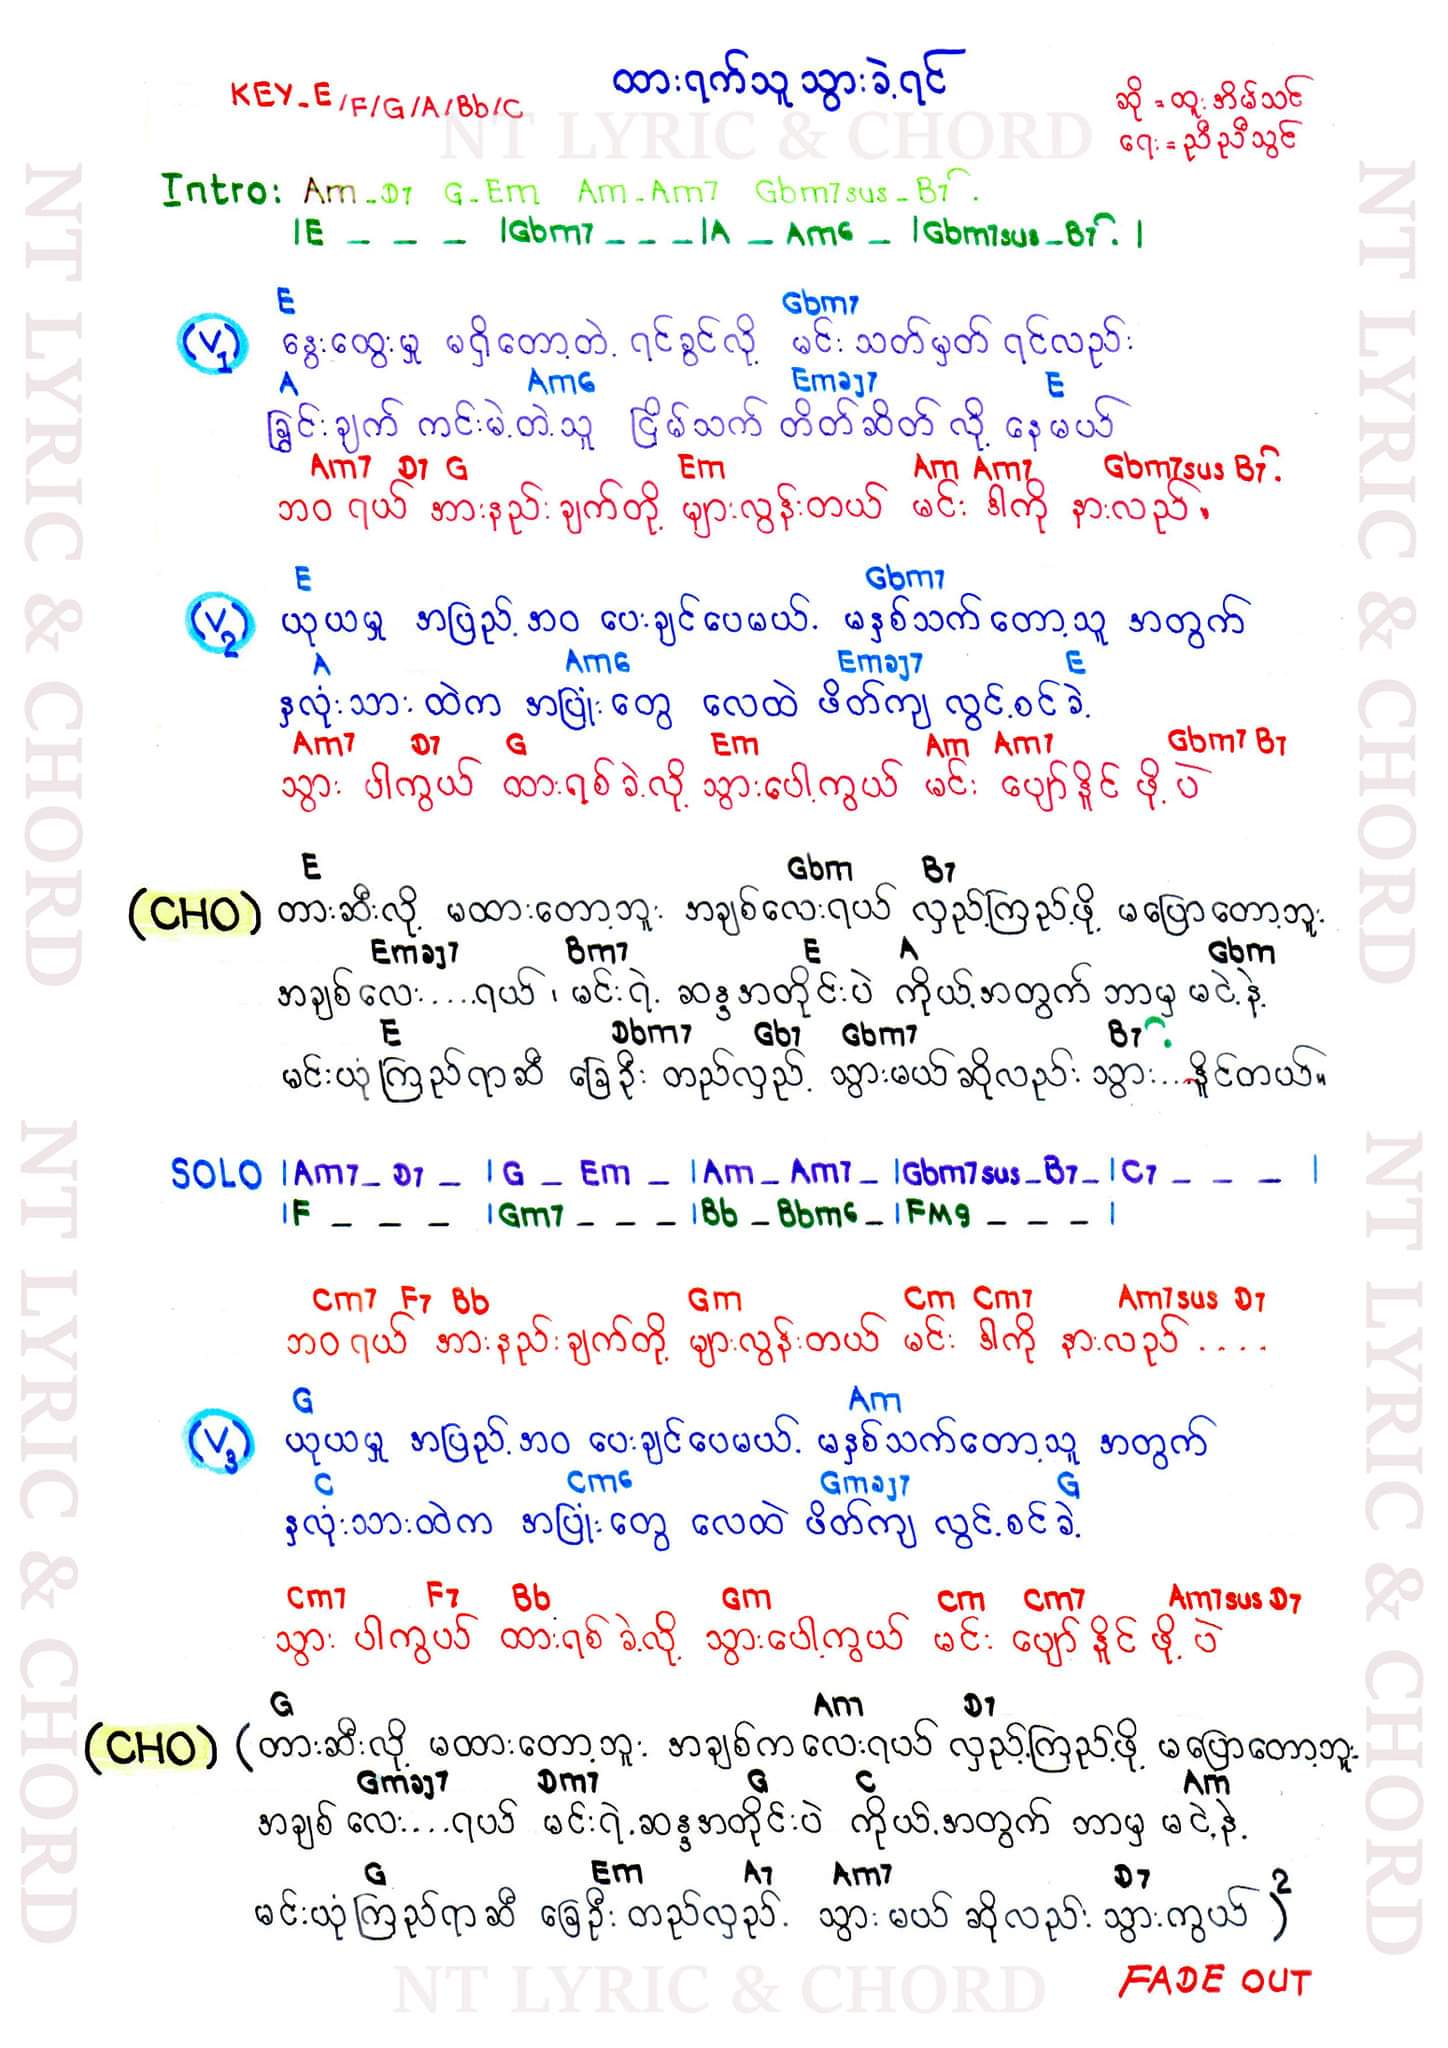 ထားရက်သူ သွားခဲ့ရင်
KEY_E/F/G/A/Bb/C
ဆို = ထူးအိမ်သင်
ရေး = ညီညီသွင်
NT LYRIC & CHORD
Intro: Am_D7 G_Em Am_Am7 Gbm7sus_B7
|E _ _ _ |Gbm7 _ _ _ |A _ Am6 _ |Gbm7sus_B7 |
E Gbm7
(V1) နွေးထွေးမှု မရှိတော့တဲ့ ရင်ခွင်လို့ မင်း သတ်မှတ် ရင်လည်း
A Am6 Emaj7 E
ခြွင်းချက် ကင်းမဲ့တဲ့သူ ငြိမ်သက် တိတ်ဆိတ် လို့ နေမယ်
Am7 D7 G Em Am Am7 Gbm7sus B7
ဘဝ ရယ် အားနည်းချက်တို့ များလွန်းတယ် မင်း ဒါကို နားလည်
E Gbm7
(V2) ယုယမှု အပြည့်အဝ ပေးချင်ပေမယ့် မနှစ်သက်တော့သူ အတွက်
A Am6 Emaj7 E
နှလုံးသားထဲက အပြုံးတွေ လေထဲ ဖိတ်ကျ လွင့်စင်ခဲ့
Am7 D7 G Em Am Am7 Gbm7 B7
သွား ပါကွယ် ထားရစ်ခဲ့လို့ သွားပေါ့ကွယ် မင်း ပျော်နိူင် ဖို့ ပဲ
E Gbm B7
(CHO) တားဆီးလို့ မထားတော့ဘူး အချစ်လေးရယ် လှည့်ကြည့်ဖို့ မပြောတော့ဘူး
Emaj7 Bm7 E A Gbm
အချစ်လေး....ရယ်၊ မင်းရဲ့ ဆန္ဒအတိုင်းပဲ ကိုယ့်အတွက် ဘာမှ မငဲ့နဲ့
E Dbm7 Gb7 Gbm7 B7
မင်းယုံကြည်ရာဆီ ခြေဦး တည်လှည့် သွားမယ်ဆိုလည်း သွား...နိူင်တယ်။
SOLO |Am7_ D7 _ |G _ Em _ |Am_ Am7_ |Gbm7sus_B7_ |C7 _ _ _ |
|F _ _ _ |Gm7 _ _ _ |Bb _Bbm6_ |FM9 _ _ _ |
Cm7 F7 Bb Gm Cm Cm7 Am7sus D7
ဘဝရယ် အားနည်းချက်တို့ များလွန်းတယ် မင်း ဒါကို နားလည် ....
G Am
(V3) ယုယမှု အပြည့်အဝ ပေးချင်ပေမယ့် မနှစ်သက်တော့သူ အတွက်
C Cm6 Gmaj7 G
နှလုံးသားထဲက အပြုံးတွေ လေထဲ ဖိတ်ကျ လွင့်စင်ခဲ့
Cm7 F7 Bb Gm Cm Cm7 Am7sus D7
သွား ပါကွယ် ထားရစ်ခဲ့လို့ သွားပေါ့ကွယ် မင်း ပျော်နိူင် ဖို့ ပဲ
G Am D7
(CHO) (တားဆီးလို့ မထားတော့ဘူး အချစ်ကလေးရယ် လှည့်ကြည့်ဖို့ မပြောတော့ဘူး
Gmaj7 Dm7 G C Am
အချစ်လေး....ရယ် မင်းရဲ့ဆန္ဒအတိုင်းပဲ ကိုယ့်အတွက် ဘာမှ မငဲ့နဲ့
G Em A7 Am7 D7
မင်းယုံကြည်ရာဆီ ခြေဦးတည်လှည့် သွားမယ် ဆိုလည်း သွားကွယ်)2
FADE OUT
NT LYRIC & CHORD
NT LYRIC & CHORD
NT LYRIC & CHORD
NT LYRIC & CHORD
NT LYRIC & CHORD